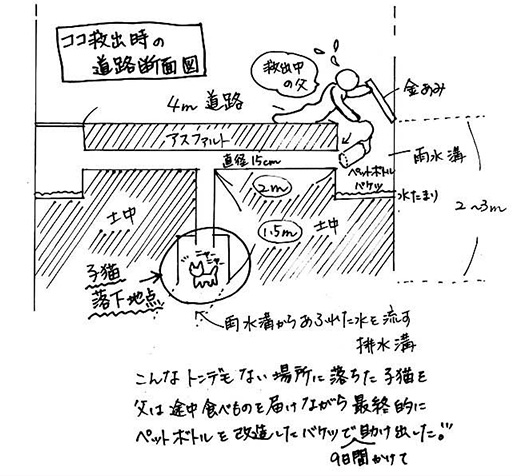 ココ救出時の
道路断面図
救出中
の父
金あみ
4m 道路
アスファルト
直径15cm
雨水溝
ペットボトル
バケツ
水たまり
2m
2~3m
土中
1.5m
土中
ニャー
ニャー
子猫
落下地点
雨水溝からあふれた水を流す
排水溝
こんなトンデモない場所に落ちた子猫を
父は途中食べものを届けながら最終的に
ペットボトルを改造したバケツで助け出した!!
9日間かけて